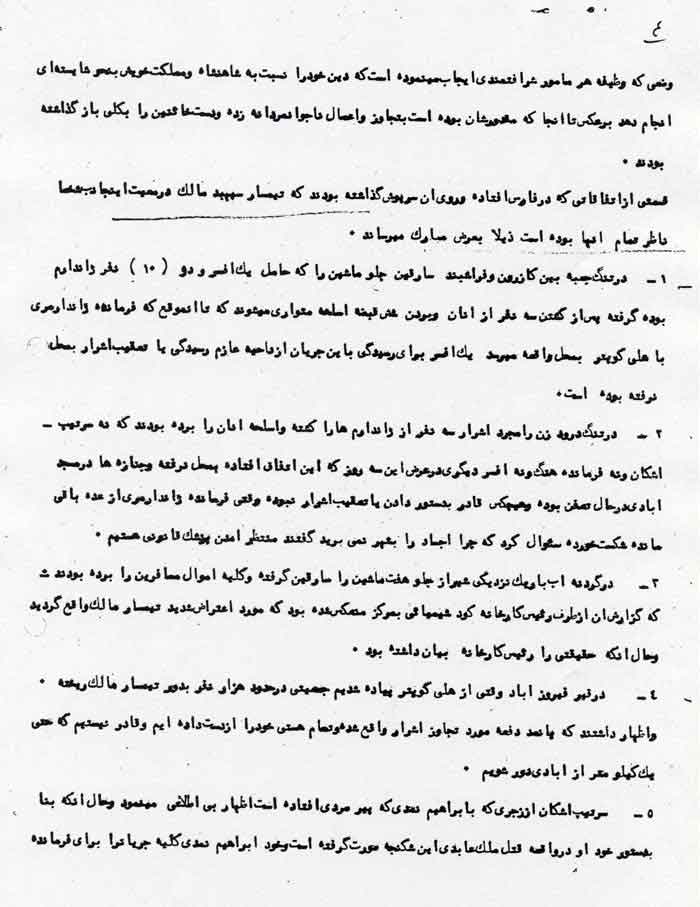 ۴
وضعی که وظیفه هر مامور شرافتمندی ایجاب مینموده است که دین خود را نسبت به شاهنشاه و مملکت خویش بنحو شایسته‌ای
انجام دهد برعکس تا آنجا که مقدورشان بوده است بتجاوز و اعمال ناجوانمردانه زده و دست خائنین را بکلی باز گذاشته
بودند ٠
قسمتی از اتفاقاتی که در فارس افتاده و روی ان سرپوش گذاشته بودند که تیمسار سپهبد مالک در معیت اینجانب شخصا
ناظر تمام انها بوده است ذیلا بعرض مبارک میرساند ٠
۱ ــ در تنگ جمیه بین کازرون و فراشبند سارقین جلو ماشین را که حامل یک افسر و دو (۱۰) نفر ژاندارم
بوده گرفته پس از کشتن سه نفر از انان و بردن شش قبضه اسلحه متواری میشوند که تا انموقع که فرمانده ژاندارمری
با هلی کوپتر بمحل واقعه میرسد یک افسر برای رسیدگی باین جریان از ناحیه عازم رسیدگی یا تعقیب اشرار بمحل
نرفته بوده است٠
۲ ــ در تنگ درود زن را مجرد اشرار سه نفر از ژاندارم ها را کشته و اسلحه انان را برده بودند که نه سرتیپ ــ
اشکان و نه فرمانده هنگ و نه افسر دیگری در عرض این سه روز که این اتفاق افتاده بمحل نرفته و جنازه ها در مسجد
ابادی در حال تعفن بوده و هیچکس قادر بدستور دادن یا تعقیب اشرار نبوده وقتی فرمانده ژاندارمری از عده باقی
مانده شکست خورده سئوال کرد که چرا اجساد را بشهر نمی برید گفتند منتظر امدن پزشک قانونی هستیم ٠
۳ ــ در گردنه اب باریک نزدیکی شیراز جلو هفت ماشین را سارقین گرفته و کلیه اموال مسافرین را برده بودند
که گزارش ان از طرف رئیس کارخانه کود شیمیائی بمرکز منعکس شده بود که مورد اعتراض شدید تیمسار مالک واقع گردید
و حال انکه حقیقتی را رئیس کارخانه بیان داشته بود ٠
٤ ــ در قیر فیروز اباد وقتی از هلی کوپتر پیاده شدیم جمعیتی در حدود هزار نفر بدور تیمسار مالک ریخته ٠
و اظهار داشتند که پانصد دفعه مورد تجاوز اشرار واقع شده و تمام هستی خود را از دست داده ایم و قادر نیستیم که حتی
یک کیلو متر از ابادی دور شویم ٠
۵ ــ سرتیپ اشکان از زجری که با ابراهیم نمدی که پیر مردی افتاده است اظهار بی اطلاعی مینمود و حال انکه بنا
بدستور خود او در واقعه قتل ملک عابدی این شکنجه صورت گرفته است و خود ابراهیم نمدی کلیه جریانرا برای فرمانده